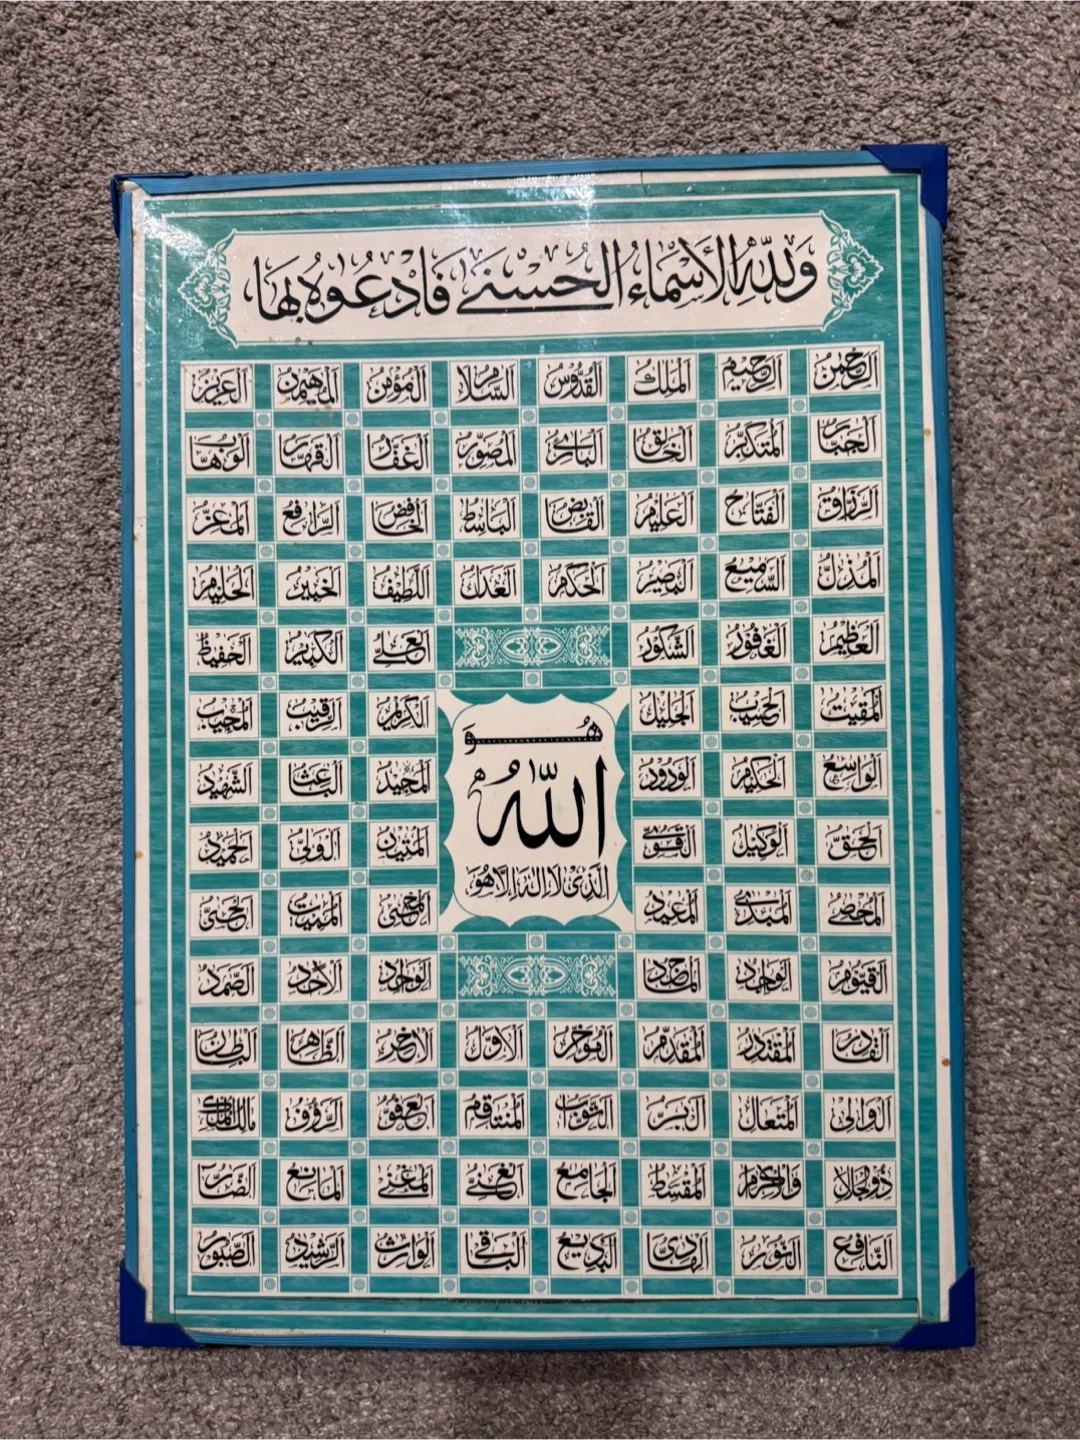 وَلِلّٰهِ الْأَسْمَاءُ الْحُسْنَىٰ فَادْعُوهُ بِهَا
الرحمن الرحيم الملك القدوس السلام المؤمن المهيمن العزيز
الجبار المتكبر الخالق البارئ المصور الغفار القهار الوهاب
الرزاق الفتاح العليم القابض الباسط الخافض الرافع المعز
المذل السميع البصير الحكم العدل اللطيف الخبير الحليم
العظيم الغفور الشكور العلي الكبير الحفيظ
المقيت الحسيب الجليل الكريم الرقيب المجيب
هو
الله
الذي لا اله الا هو
الواسع الحكيم الودود المجيد الباعث الشهيد
الحق الوكيل القوي المتين الولي الحميد
المحصي المبدئ المعيد المحيي المميت الحي
القيوم الواجد الماجد الواحد الاحد الصمد
القادر المقتدر المقدم المؤخر الاول الآخر الظاهر الباطن
الوالي المتعال البر التواب المنتقم العفو الرؤوف مالك الملك
ذو الجلال والإكرام المقسط الجامع الغني المغني المانع الضار
النافع النور الهادي البديع الباقي الوارث الرشيد الصبور